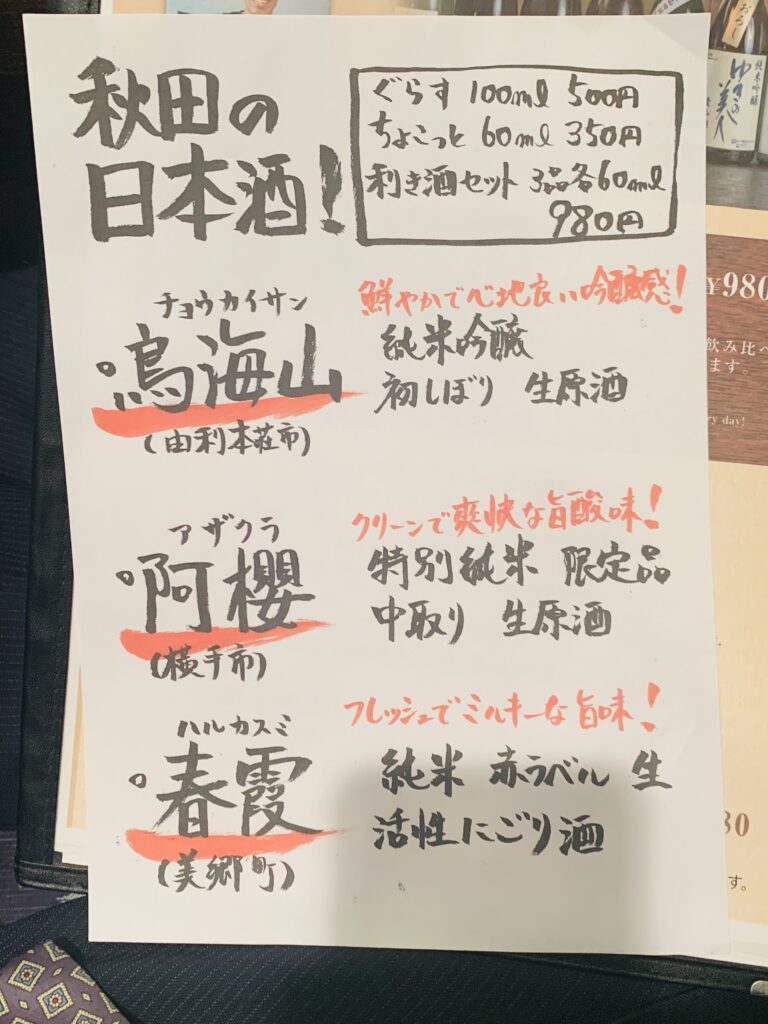 秋田の
日本酒!
ぐらす 100ml 500円
ちょこっと 60ml 350円
利き酒セット 3品各60ml
980円
チョウカイサン
鳥海山
(由利本荘市)
鮮やかで心地良い吟醸感!
純米吟醸
初しぼり 生原酒
アザクラ
阿櫻
(横手市)
クリーンで爽快な旨酸味!
特別純米 限定品
中取り 生原酒
ハルカスミ
春霞
(美郷町)
フレッシュでミルキーな旨味!
純米 赤ラベル 生
活性にごり酒
おろし
純米吟醸
ゆきの美人
¥980
飲み比べ
ます。
ry day!
80
す。